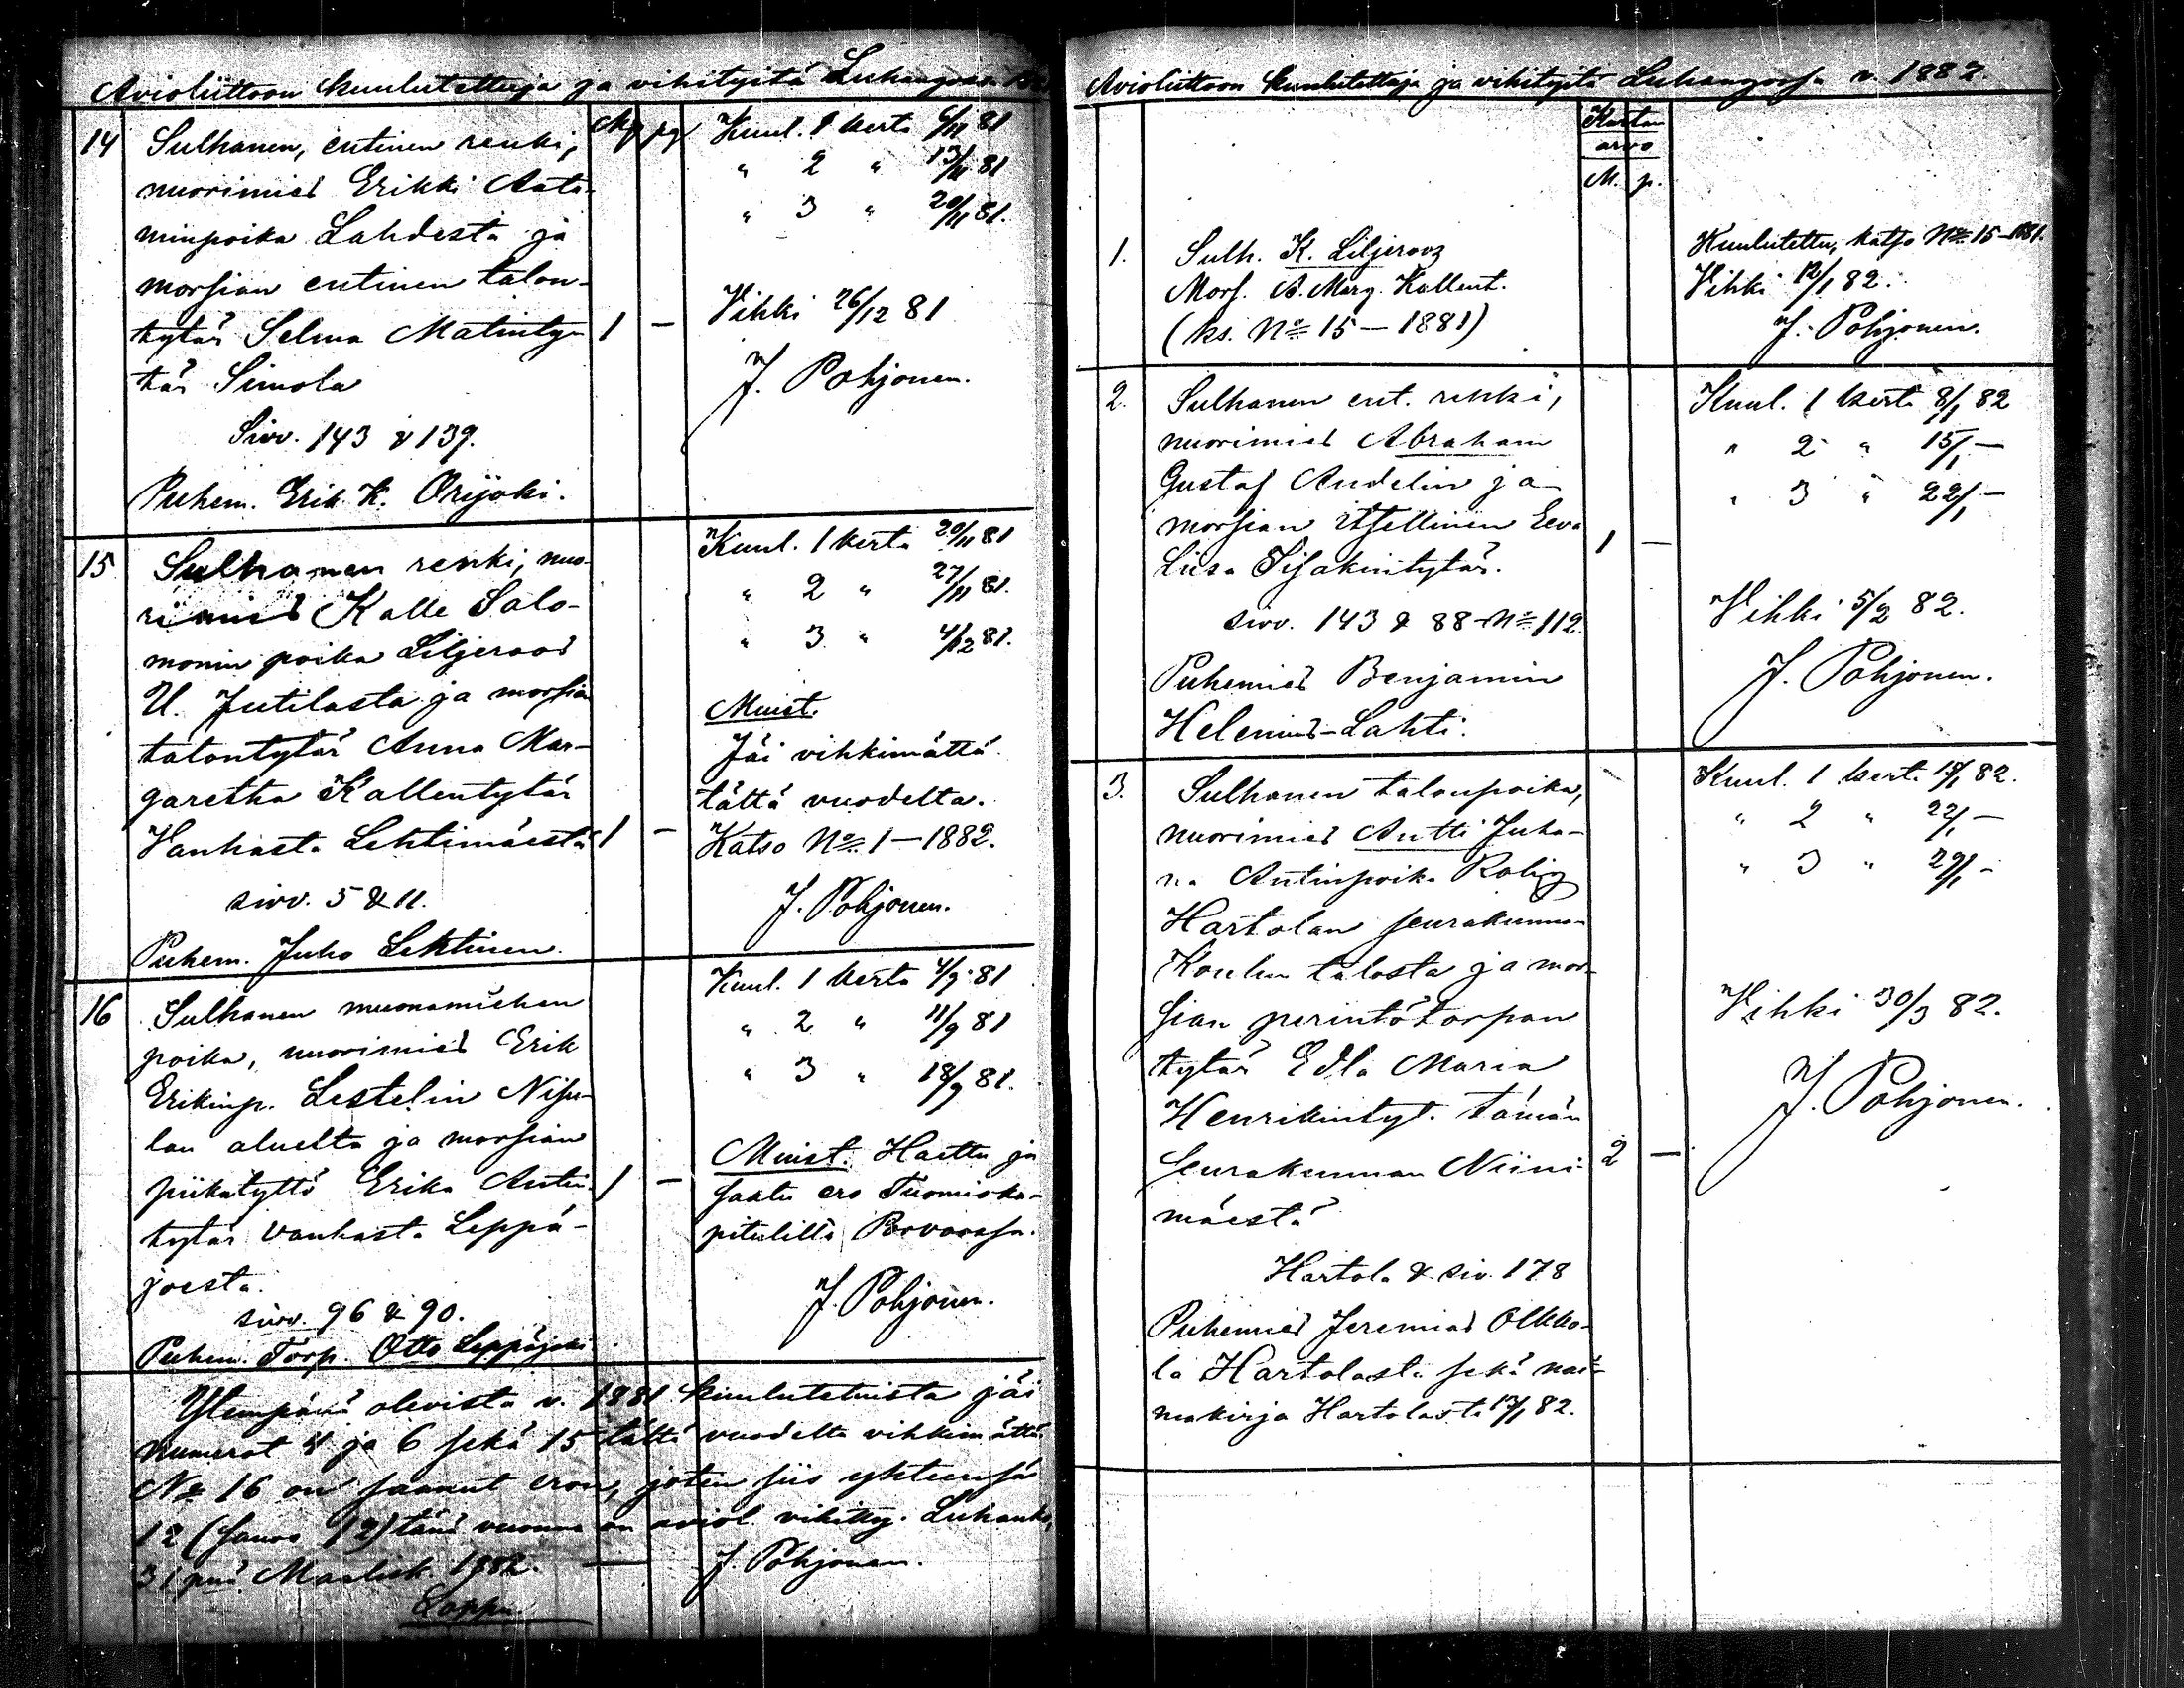 Avioliittoon kuulutettuja ja vihityitä Luhangossa
14 Sulhanen, entinen renki,
nuorimies Erikki Aata-
minpoika Lahdesta ja
morsian entinen talon-
tytär Selma Matinty-
tär Simola
Sivv. 143 & 139.
Puhem. Erik K. Orijoki.
Mk pg
1 —
Kuul. 1 kerta 6/11 81
" 2 " 13/11 81
" 3 " 20/11 81.
Vihki 26/12 81
J. Pohjonen.
15 Sulhanen renki, nuo-
rimies Kalle Salo-
monin poika Liljeroos
U. Jutilasta ja morsian
talontytär Anna Mar-
garetha Kallentytär
Vanhasta Lehtimäestä
sivv. 5 & 11.
Puhem. Juho Lehtinen.
1 —
Kuul. 1 kerta 20/11 81
" 2 " 27/11 81.
" 3 " 4/12 81.
Muist.
Jäi vihkimättä
tältä vuodelta.
Katso No 1 — 1882.
J. Pohjonen.
16 Sulhanen muonamiehen
poika, nuorimies Erik
Erikinp. Lestelin Nipu-
lan aluelta ja morsian
piikatyttö Erika Antin-
tytär vanhasta Leppä-
joesta.
sivv. 96 & 90.
Puhem. Torp. Otto Leppäjoki
1 —
Kuul. 1 kerta 4/9 81
" 2 " 11/9 81
" 3 " 18/9 81.
Muist. Haettu ja
saatu ero Tuomioka-
pitulilta Porvoossa.
J. Pohjonen.
Ylempänä olevista v. 1881 kuulutetuista jäi
numerot 4 ja 6 sekä 15 tältä vuodelta vihkimättä
No 16 on saanut eron, joten siis yhteensä
12 (sanoo 12) tänä vuonna on aviol. vihitty. Luhanko,
31 pnä Maalisk. 1882. — J. Pohjonen.
Loppu
Avioliittoon kuulutettuja ja vihityitä Luhangossa v. 1882.
Kartan
arvo
M. p.
1. Sulh. K. Liljeroos
Mors. A. Marg. Kallent.
(ks. No 15 — 1881)
Kuulutettu, katso No 15 — 1881.
Vihki 12/1 82.
J. Pohjonen.
2. Sulhanen ent. renki,
nuorimies Abraham
Gustaf Andelin ja
morsian itsellinen Eeva
Liisa Iisakintytär.
sivv. 143 & 88 - No 112.
Puhemies Benjamin
Helenius-Lahti.
1 —
Kuul. 1 kerta 8/1 82
" 2 " 15/1 —
" 3 " 22/1 —
Vihki 5/2 82.
J. Pohjonen.
3. Sulhanen talonpoika,
nuorimies Antti Juha-
na Antinpoika Rolig
Hartolan seurakunnan
Koulun talosta ja mor-
sian perintötorpan
tytär Edla Maria
Henrikintyt. tämän
seurakunnan Niini-
mäestä
Hartola & siv. 178
Puhemies Jeremias Olkko-
la Hartolasta sekä nai-
makirja Hartolasta 13/1 82.
2 —
Kuul. 1 kert. 15/1 82.
" 2 " 22/1 —
" 3 " 29/1 —
Vihki 30/3 82.
J. Pohjonen.